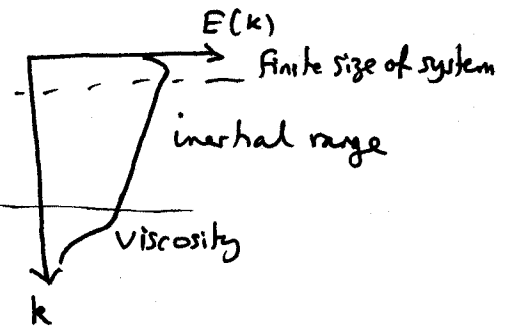 E(k)
finite size of system
inertial range
viscosity
k